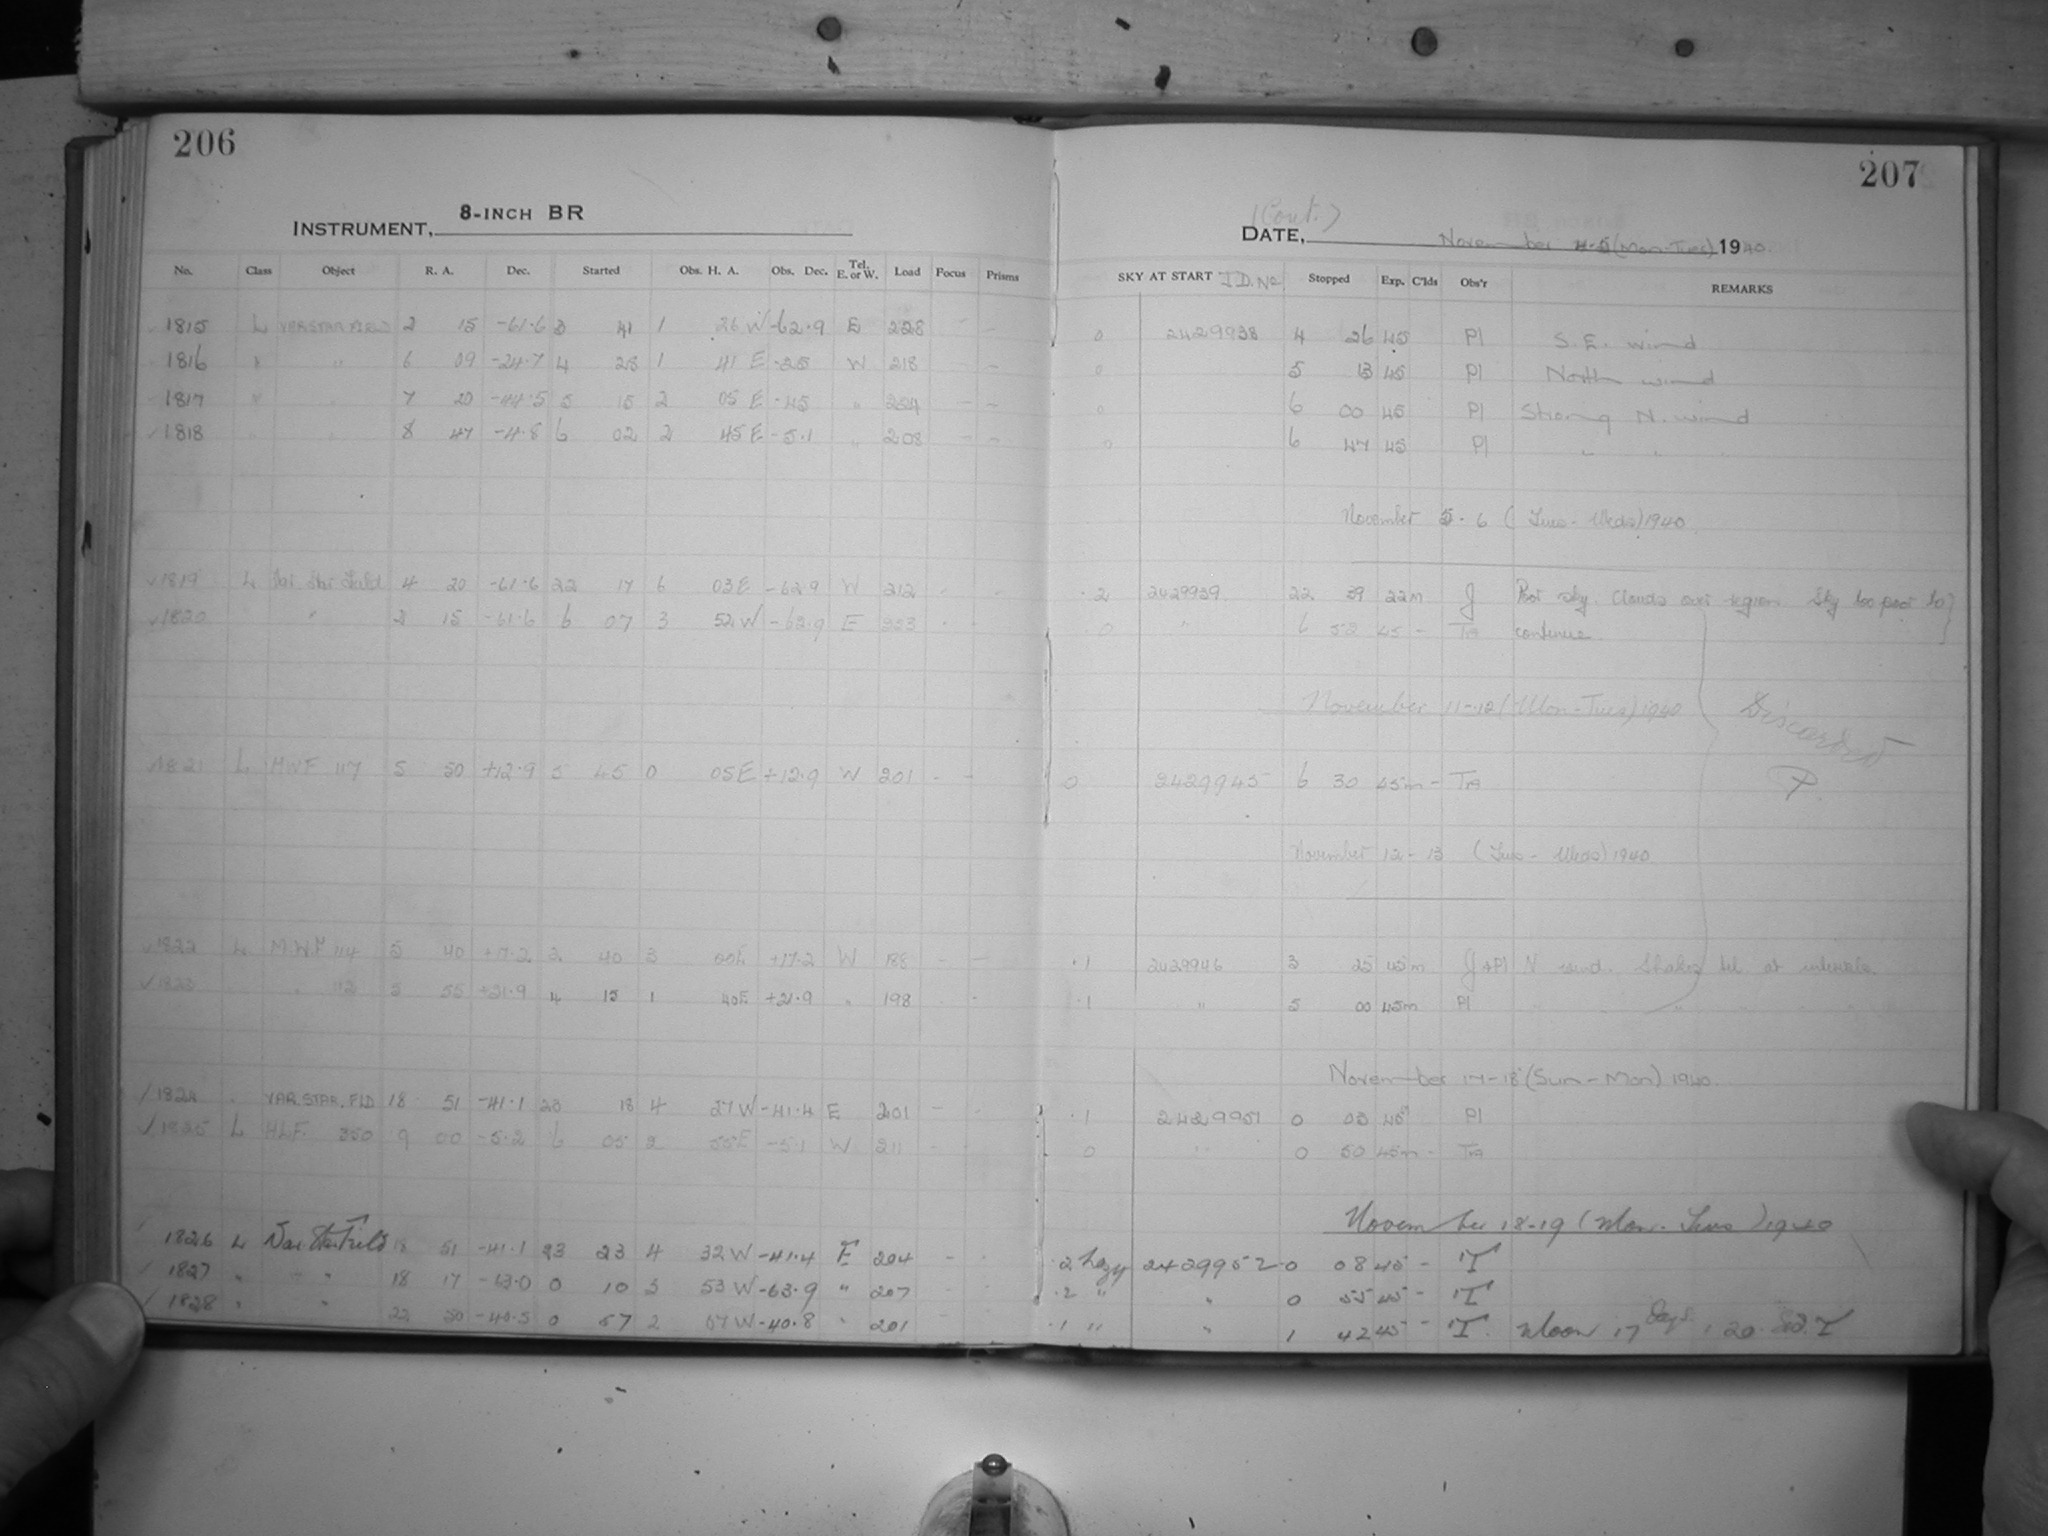 206
8-INCH BR
INSTRUMENT,
No. Class Object R. A. Dec. Started Obs. H. A. Obs. Dec. Tel. E. or W. Load Focus Prisms
1815 L VAR STAR FIELD 2 15 -61.6 3 41 1 26 W -62.9 E 228 - -
1816 " " 6 09 -24.7 4 28 1 41 E -25 W 218 - -
1817 " " 7 20 -44.5 5 15 2 05 E -45 " 204 - -
1818 " " 8 47 -4.8 6 02 2 45 E -5.1 " 208 - -
1819 L Var Star Field 4 20 -61.6 22 17 6 03 E -62.9 W 212 - -
1820 " 2 15 -61.6 6 07 3 52 W -62.9 E 223 - -
1821 L MWF 117 5 50 +12.9 5 45 0 05 E +12.9 W 201 - -
1822 L M.W.F 114 5 40 +17.2 2 40 3 00 E +17.2 W 188 - -
1823 " 112 5 55 +21.9 4 15 1 40 E +21.9 " 198 - -
1824 " VAR. STAR. FLD 18 51 -41.1 23 18 4 27 W -41.4 E 201 - -
1825 L HLF. 350 9 00 -5.2 6 05 2 55 E -5.1 W 211 - -
1826 L Var. Star Field 18 51 -41.1 23 23 4 32 W -41.4 E 204 - -
1827 " " " 18 17 -63.0 0 10 5 53 W -63.9 " 207 - -
1828 " " 22 30 -40.5 0 57 2 07 W -40.8 " 201 - -
207
(Cont.)
DATE, November 4-5 (Mon-Tues) 1940.
SKY AT START J.D. No. Stopped Exp. C'lds Obs'r REMARKS
0 2429938 4 26 45 Pl S.E. wind
0 5 13 45 Pl North wind
0 6 00 45 Pl Strong N. wind
0 6 47 45 Pl " " "
November 5-6 (Tues-Weds) 1940
.2 2429939 22 39 22m J Poor sky. Clouds over region. Sky too poor to
0 " 6 52 45 - TA continue.
November 11-12 (Mon-Tues) 1940
Discarded
0 2429945 6 30 45m - TA
November 12-13 (Tues-Weds) 1940
.1 2429946 3 25 45m J & Pl N wind. Shakes tel. at intervals.
.1 " 5 00 45m Pl " " " "
November 17-18 (Sun-Mon) 1940.
.1 2429951 0 03 45 Pl
0 " 0 50 45m - TA
November 18-19 (Mon-Tues) 1940
.2 hazy 2429952 0 08 45 - T
.2 " " 0 55 45 - T
.1 " " 1 42 45 - T. Moon 17 days